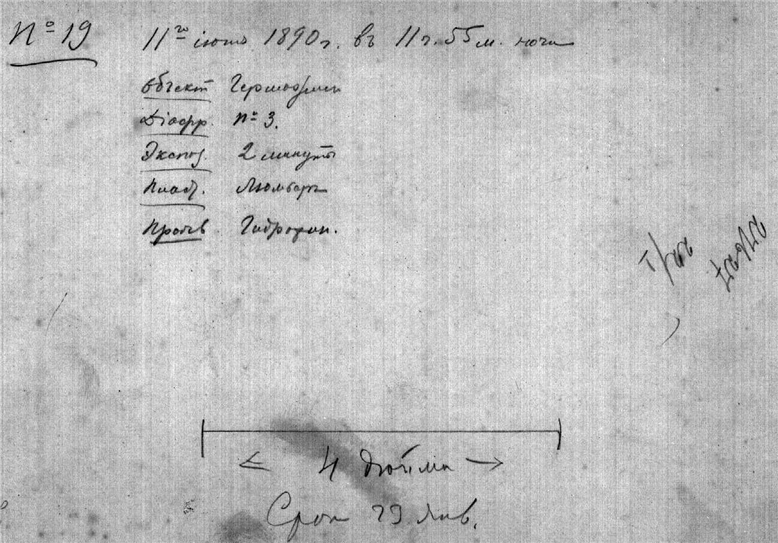 № 19
11го іюня 1890 г. въ 11 ч. 55 м. ночи
Объект
Діафр. № 3.
Экспоз. 2 минуты
Пласт. Люмьеръ
Прояв. Гидрохин.
4 дюйма
Срок 23 Янв.